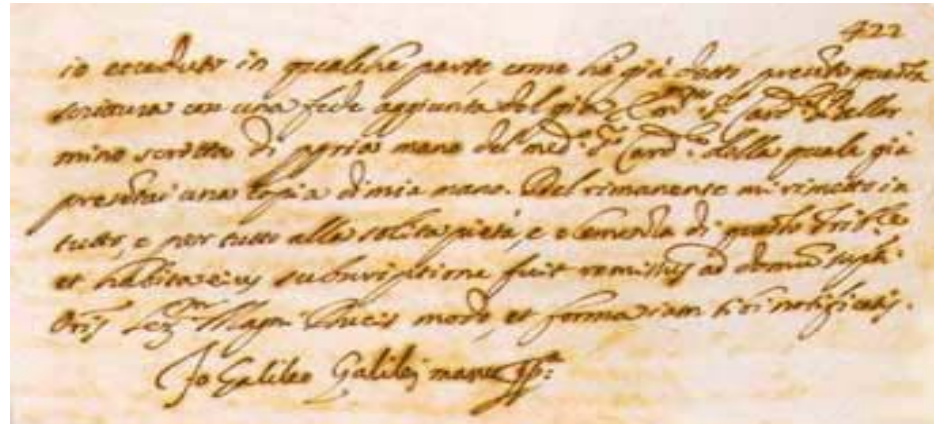 422
io ecceduto in qualche parte, come hà già detto presento questa
scrittura con una fede aggiunta del già Card.le Bellar
mino scritta di ppria mano del med.o S.r Card.le della quale già
presentai una copia di mia mano. Del rimanente mi rimetto in
tutto, e per tutto alla solita pietà, e clemenza di questo Trib.le
et habita eius subscriptione fuit remissus ad domum supti
Oris Ser.mi Magni Ducis modo, et forma iam sibi notificatis.
Io Galileo Galilei manu pp.a